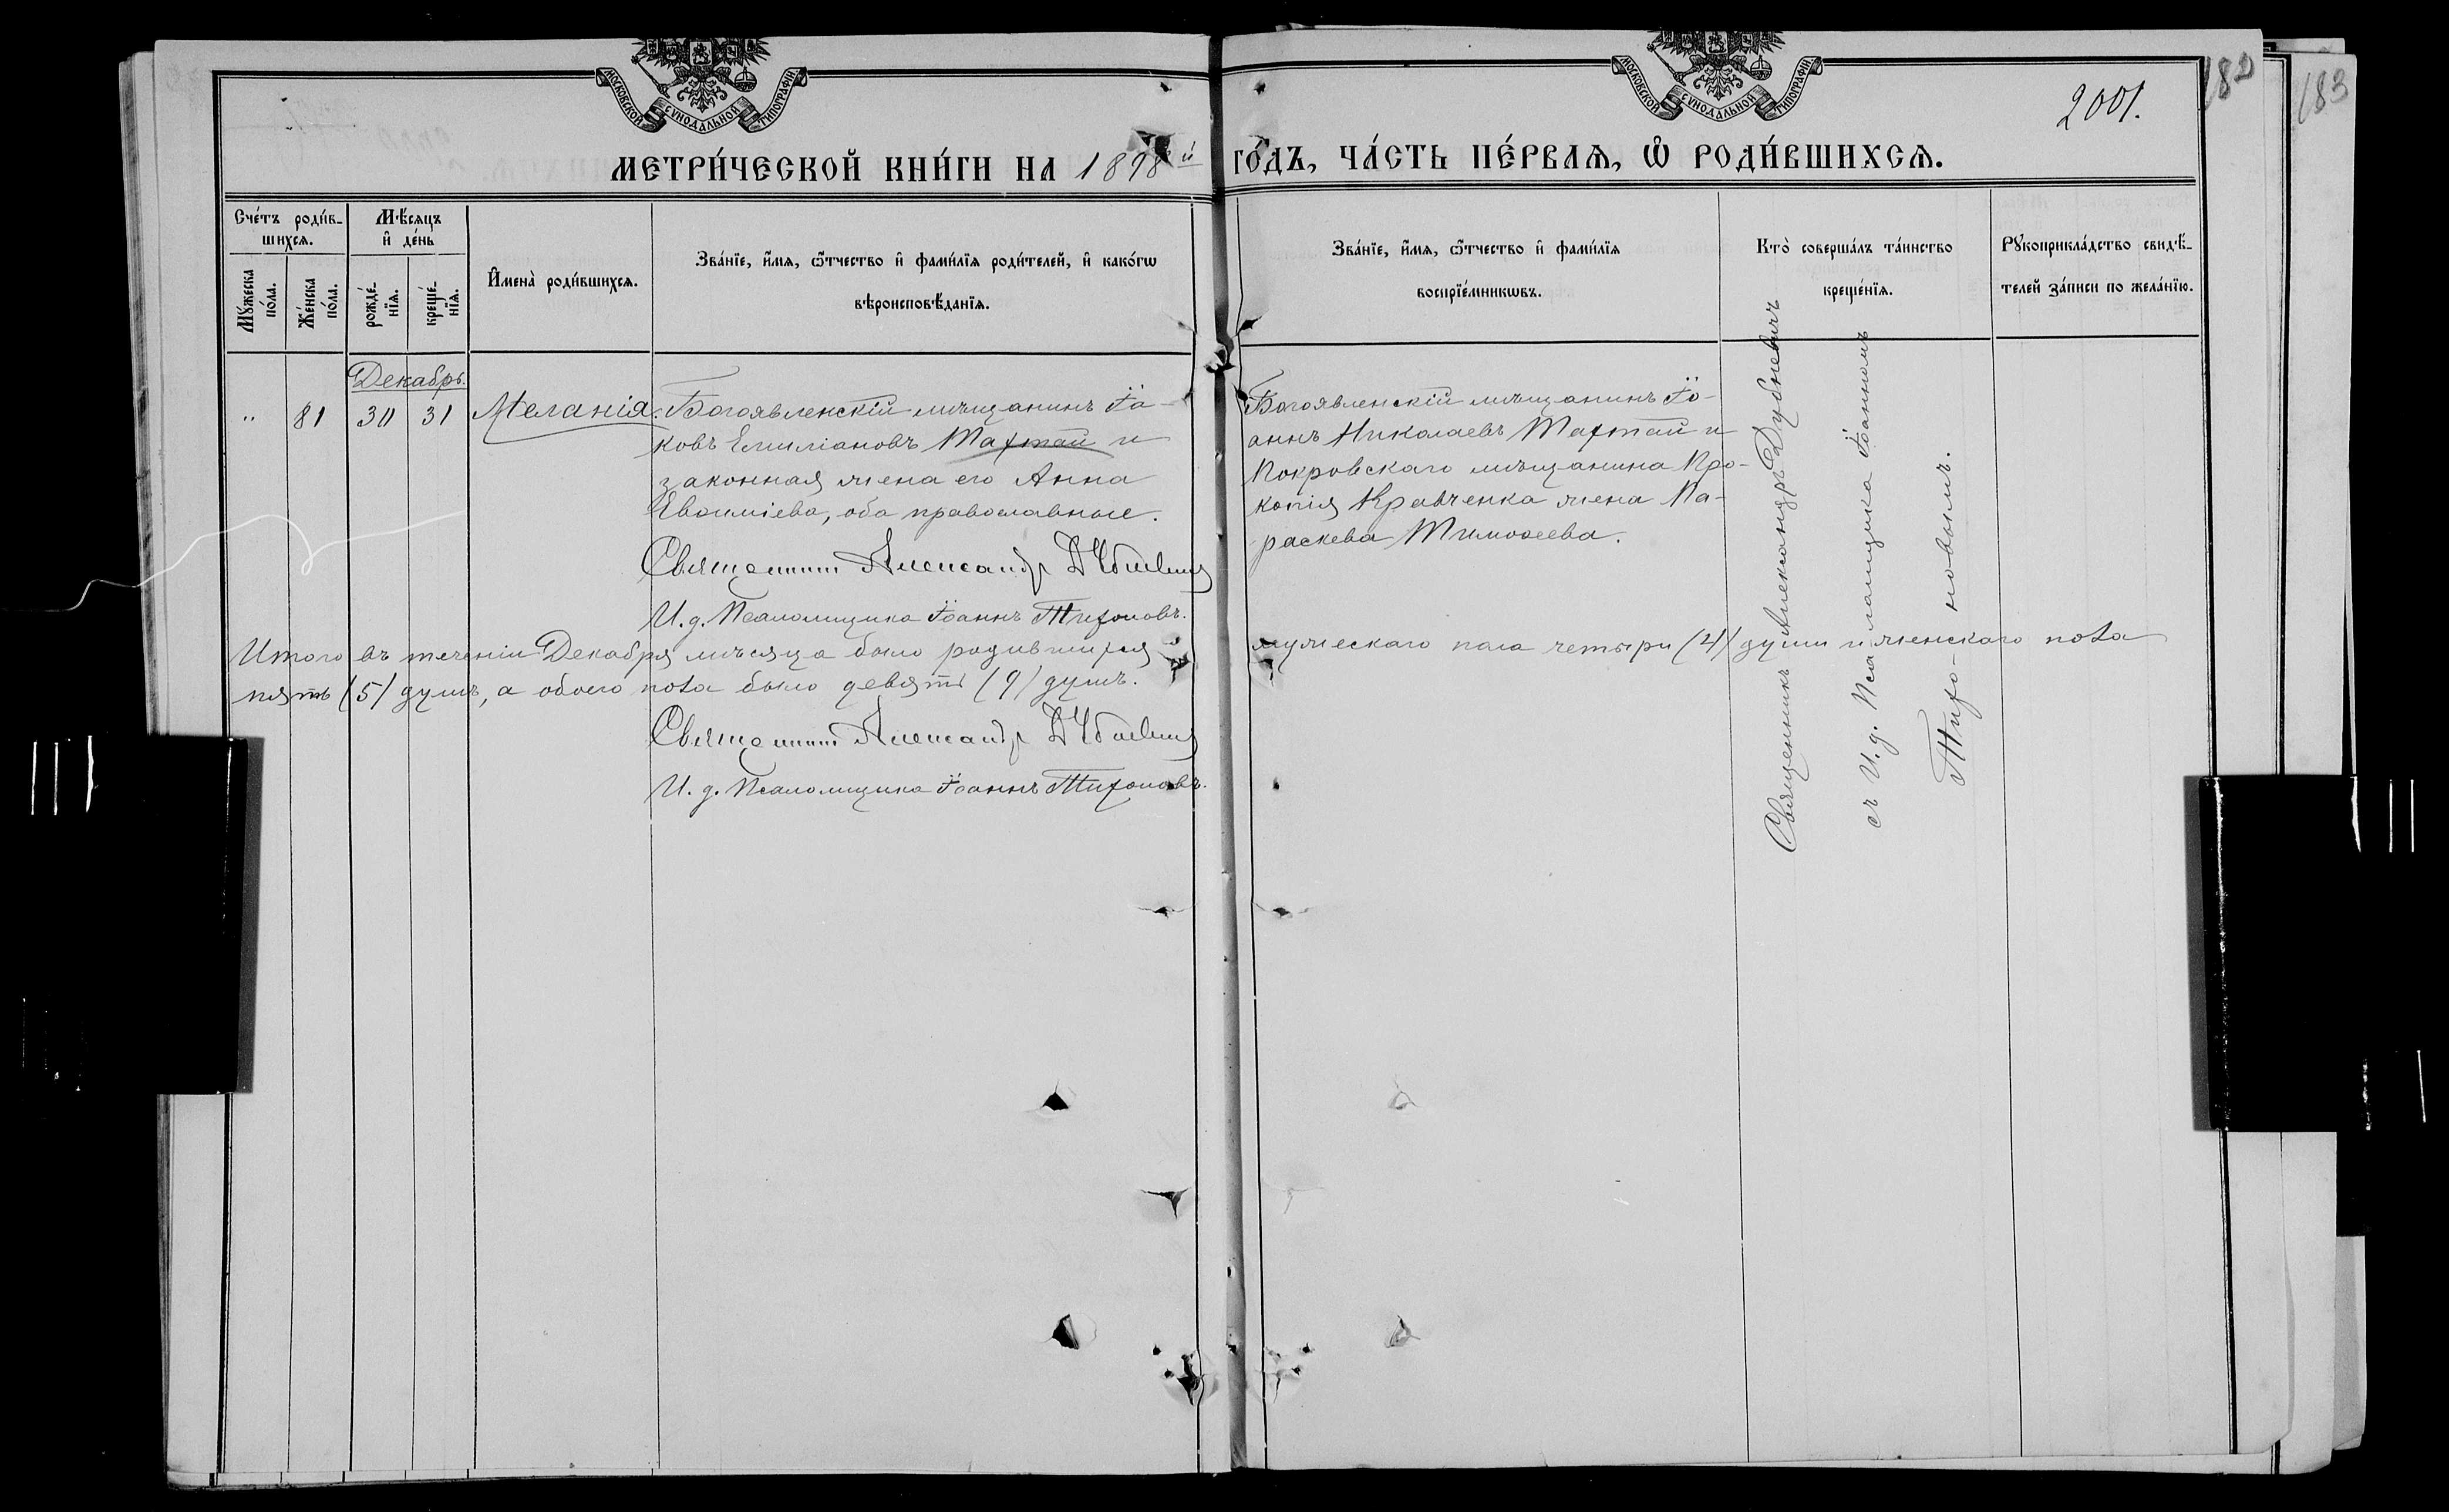 МОСКОВСКОЙ СѴНОДАЛЬНОЙ ТИПОГРАФІИ
МОСКОВСКОЙ СѴНОДАЛЬНОЙ ТИПОГРАФІИ
2001.
182
183
МЕТРИ́ЧЕСКОЙ КНИ́ГИ НА 1898й ГО́ДЪ, ЧА́СТЬ ПЕ́РВАѦ, Ѡ҆ РОДИ́ВШИХСѦ.
Сче́тъ роди́в-
шихсѧ.
Мꙋ́жеска по́ла.
Же́нска по́ла.
Мѣ́сѧцъ
и҆ де́нь
рожде́-
нїѧ.
креще́-
нїѧ.
И҆мена̀ роди́вшихсѧ.
Зва́нїе, и҆́мѧ, ѻ҆́тчество и҆ фами́лїѧ роди́телей, и҆ како́гѡ
вѣроисповѣ́данїѧ.
Зва́нїе, и҆́мѧ, ѻ҆́тчество и҆ фами́лїѧ
воспрїе́мникѡвъ.
Кто̀ соверша́лъ та́инство
креще́нїѧ.
Рꙋкоприкла́дство свидѣ́-
телей за́писи по жела́нїю.
Декабрь.
" 81 30 31 Меланія.
Богоявленскій мѣщанинъ Іа-
ковъ Емиліановъ Тахтай и
законная жена его Анна
Евѳиміева, оба православные.
Священникъ Александръ Дубневичъ
И. д. Псаломщика Іоаннъ Тихоновъ.
Богоявленскій мѣщанинъ Іо-
аннъ Николаевъ Тахтай и
Покровскаго мѣщанина Про-
копія Кравченка жена Па-
раскева Тимоѳеева.
Священникъ Александръ Дубневичъ
съ И. д. Псаломщика Іоанномъ
Тихо-новымъ.
Итого въ теченіи Декабря мѣсяца было родившихся мужескаго пола четыри (4) души и женскаго пола
пять (5) душъ, а обоего пола было девять (9) душъ.
Священникъ Александръ Дубневичъ
И. д. Псаломщика Іоаннъ Тихоновъ.